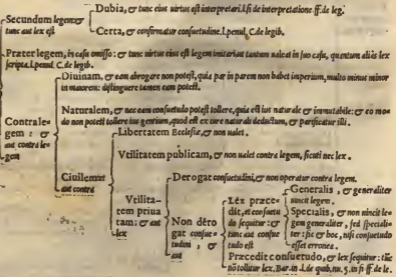 Dubia, & tunc eius uirtus est interpretari. l. si de interpretatione ff. de leg.
Secundum legem: &
tunc aut lex est
Certa, & confirmatur consuetudine. l. penul. C. de legib.
Præter legem, in casu omisso: & tunc uirtus eius est legem imitari: an tantum ualeat in suo casu, quantum aliàs lex
scripta. l. penul. C. de legib.
Diuinam, & eam abrogare non potest, quia par in parem non habet imperium, multo minus minor
in maiorem: distinguere tamen eam potest.
Contra le-
gem: &
aut contra le-
gem
Naturalem, & nec eam consuetudo potest tollere, quia est ius naturale & immutabile: & eo mo-
do non potest tollere ius gentium, quod est ex iure naturæ deductum, & parificatur illi.
Libertatem Ecclesiæ, & non ualet.
Vtilitatem publicam, & non ualet contra legem, sicuti nec lex.
Ciuilem: et
aut contra
Derogat consuetudini, & non operatur contra legem.
Vtilita-
tem priua
tam: & aut
lex
Non dero
gat consue-
tudini, &
aut
Lex præce-
dit, et consuetu
do sequitur: &
tunc aut consue
tudo est
Generalis, & generaliter
uincit legem.
Specialis, & non uincit le-
gem generaliter, sed speciali-
ter: sic & hoc, nisi consuetudo
esset erronea.
Præcedit consuetudo, & lex sequitur: tunc
tollitur lex. Bar. in l. de quib. nu. 5. in fi. ff. de le.